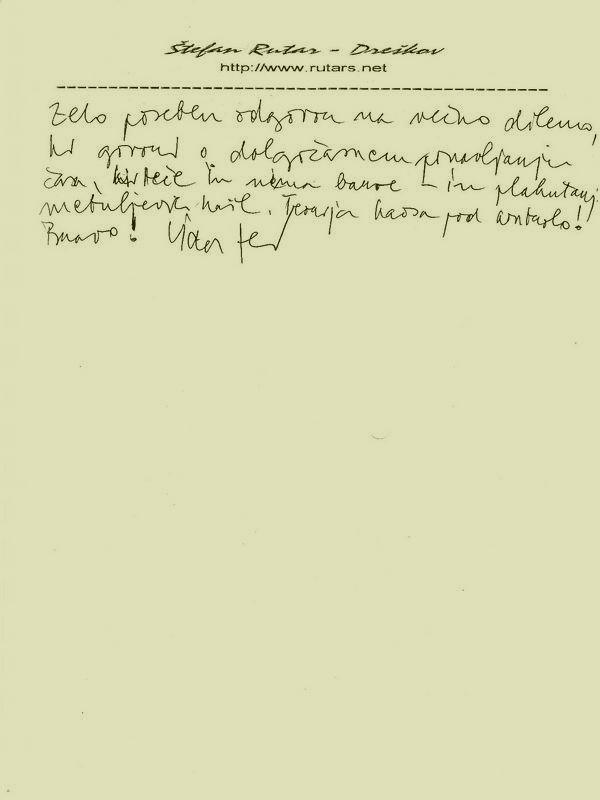 Štefan Rutar - Dreškov
http://www.rutars.net
Zelo poseben odgovor na večno dilemo,
ki govori o dolgočasnem ponavljanju
časa, ki teče in nima barve - in plahutanj
metuljevih kril. Teorija kaosa pod kontrolo!
Bravo!